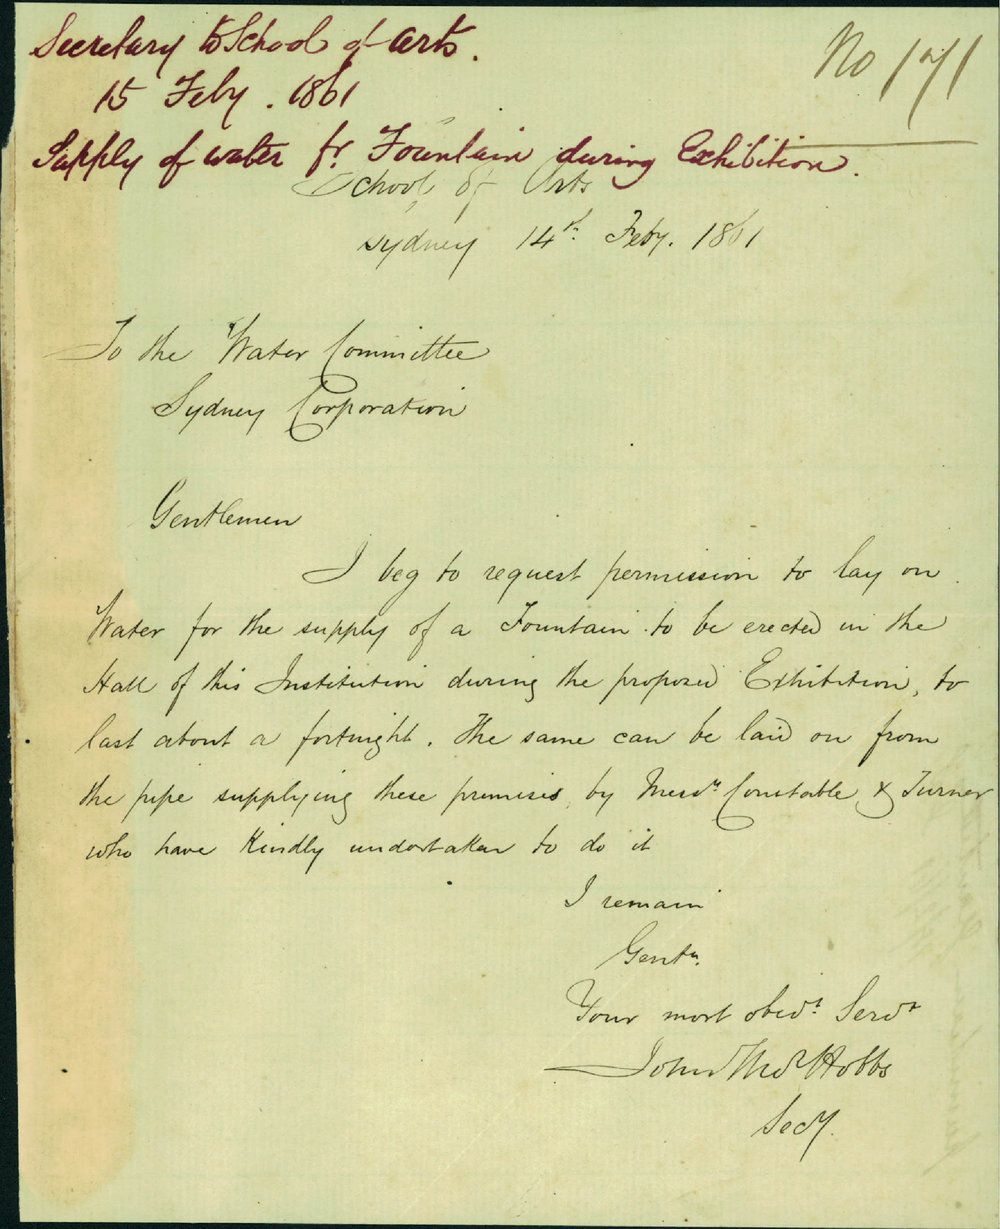 Secretary to School of Arts.
No 171
15 Feby. 1861
Supply of water fr. Fountain during Exhibition.
School of Arts
Sydney 14th Feby. 1861
To the Water Committee
Sydney Corporation
Gentlemen
I beg to request permission to lay on
Water for the supply of a Fountain to be erected in the
Hall of this Institution during the proposed Exhibition, to
last about a fortnight. The same can be laid on from
the pipe supplying these premises, by Messrs Constable & Turner
who have Kindly undertaken to do it
I remain
Gentn.
Your most obedt. Servt
John Thos Hobbs
Secy.